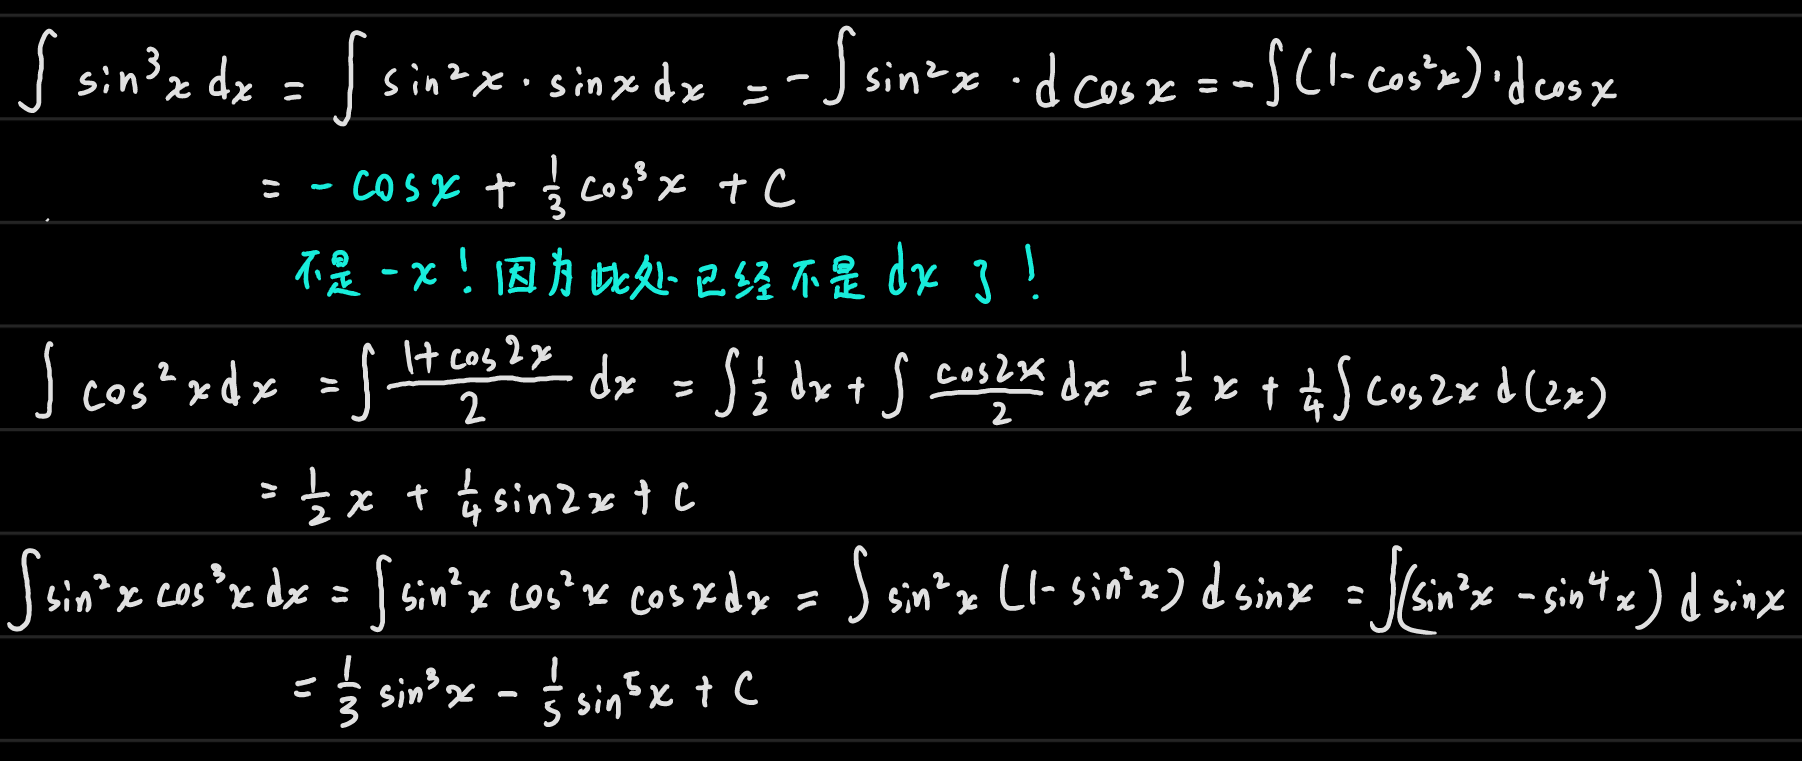 ∫ sin³x dx = ∫ sin²x · sinx dx = -∫ sin²x · d cosx = -∫(1-cos²x)·d cosx
= -cosx + 1/3 cos³x + C
不是 -x！因为此处已经不是 dx 了！
∫ cos²x dx = ∫ (1+cos2x)/2 dx = ∫ 1/2 dx + ∫ cos2x/2 dx = 1/2 x + 1/4 ∫ cos2x d(2x)
= 1/2 x + 1/4 sin2x + C
∫ sin²x cos³x dx = ∫ sin²x cos²x cosx dx = ∫ sin²x (1-sin²x) d sinx = ∫(sin²x - sin⁴x) d sinx
= 1/3 sin³x - 1/5 sin⁵x + C